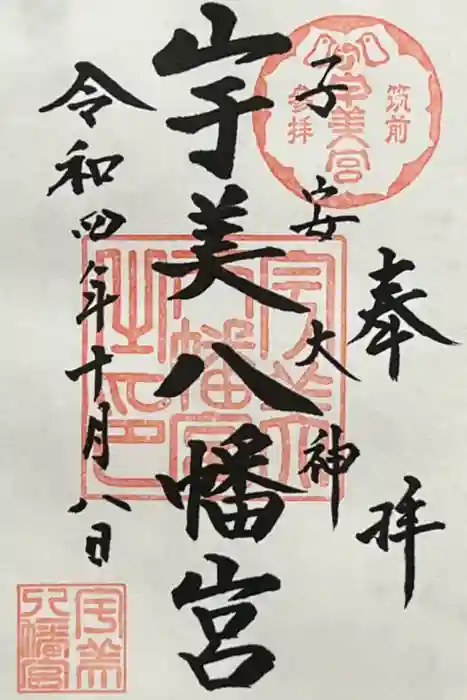 奉拝
子安大神
宇美八幡宮
令和四年十月八日
筑前
宇美宮
参拝
宇美八幡宮之印
宇美
八幡宮